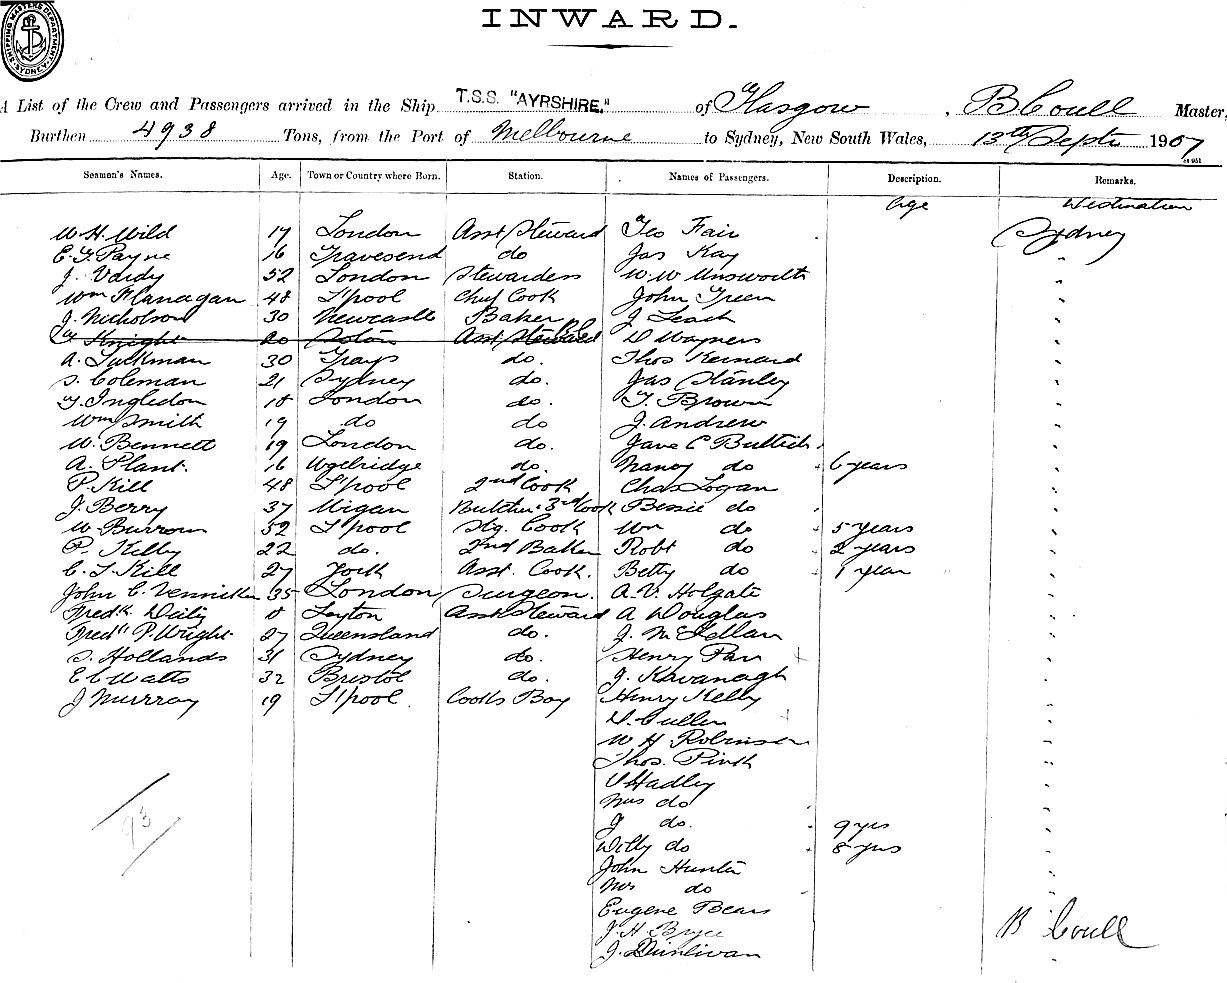 SHIPPING MASTERS DEPARTMENT SYDNEY
INWARD.
A List of the Crew and Passengers arrived in the Ship T.S.S. "AYRSHIRE." of Glasgow, B Coull Master,
Burthen 4938 Tons, from the Port of Melbourne to Sydney, New South Wales, 13th Septr 1907
Seamen's Names. Age. Town or Country where Born. Station. Names of Passengers. Description. Remarks.
Age Destination
W. H. Wild 17 London Asst Steward Geo Fair Sydney
E. G. Payne 16 Gravesend do Jas Kay "
J. Vardy 52 London Stewardess W. W Unsworth "
Wm Flanagan 48 L'pool Chief Cook John Green "
J. Nicholson 30 Newcastle Baker J Leach "
Knight 20 Asst Steward D Wagners "
A. Tuckman 30 Grays do. Thos Kernard "
S. Coleman 21 Sydney do. Jas Stanley "
G. Ingledon 18 London do. T. Brown "
Wm Smith 19 do do J. Andrew "
W. Bennett 19 London do. Jane C "
A. Plant. 16 do. Nancy do 6 years "
P. Kill 48 L'pool 2nd Cook Chas Logan "
J. Berry 37 Wigan Butcher & 3rd Cook Bessie do "
W. Burrows 52 L'pool Cook Wm do 5 years "
P. Kelly 22 do. 2nd Baker Robt do 2 years "
C. T. Kill 27 York Asst. Cook. Betty do 1 year "
John C. 35 London Surgeon. A. V. Holgate "
Fredk. Leyton Asst Steward A Douglas "
Fredk P. Wright 27 Queensland do. J. McLellan "
S. Hollands 31 Sydney do. Henry "
E C Watts 32 Bristol do. J. Kavanagh "
J Murray 19 L'pool. Cooks Boy Henry Kelly "
D. Cullen "
W H Robinson "
Thos. Pink "
Hadley "
Mrs do "
J do. 9 yrs "
Willy do 8 yrs "
John Hunter "
Mrs do "
Eugene "
J. H. Bryce
J. Dunlivan "
93
B Coull